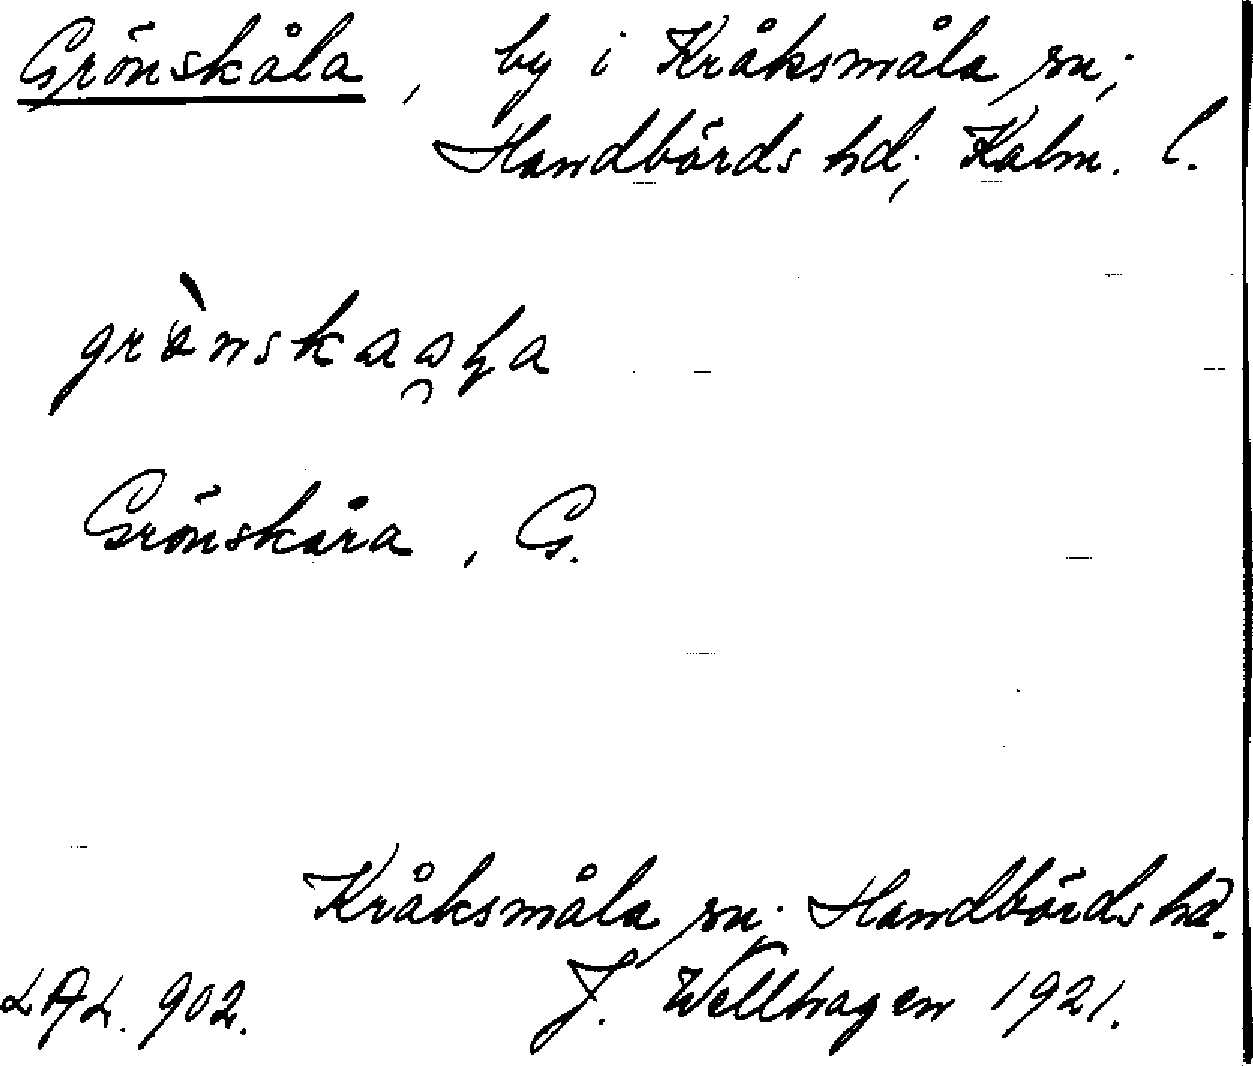 Grönskåla, by i Kråksmåla sn;
Handbörds hd; Kalm. l.
Grönskåra, G.
Kråksmåla sn; Handbörds hd.
LAL. 902. J. Wellhagen 1921.